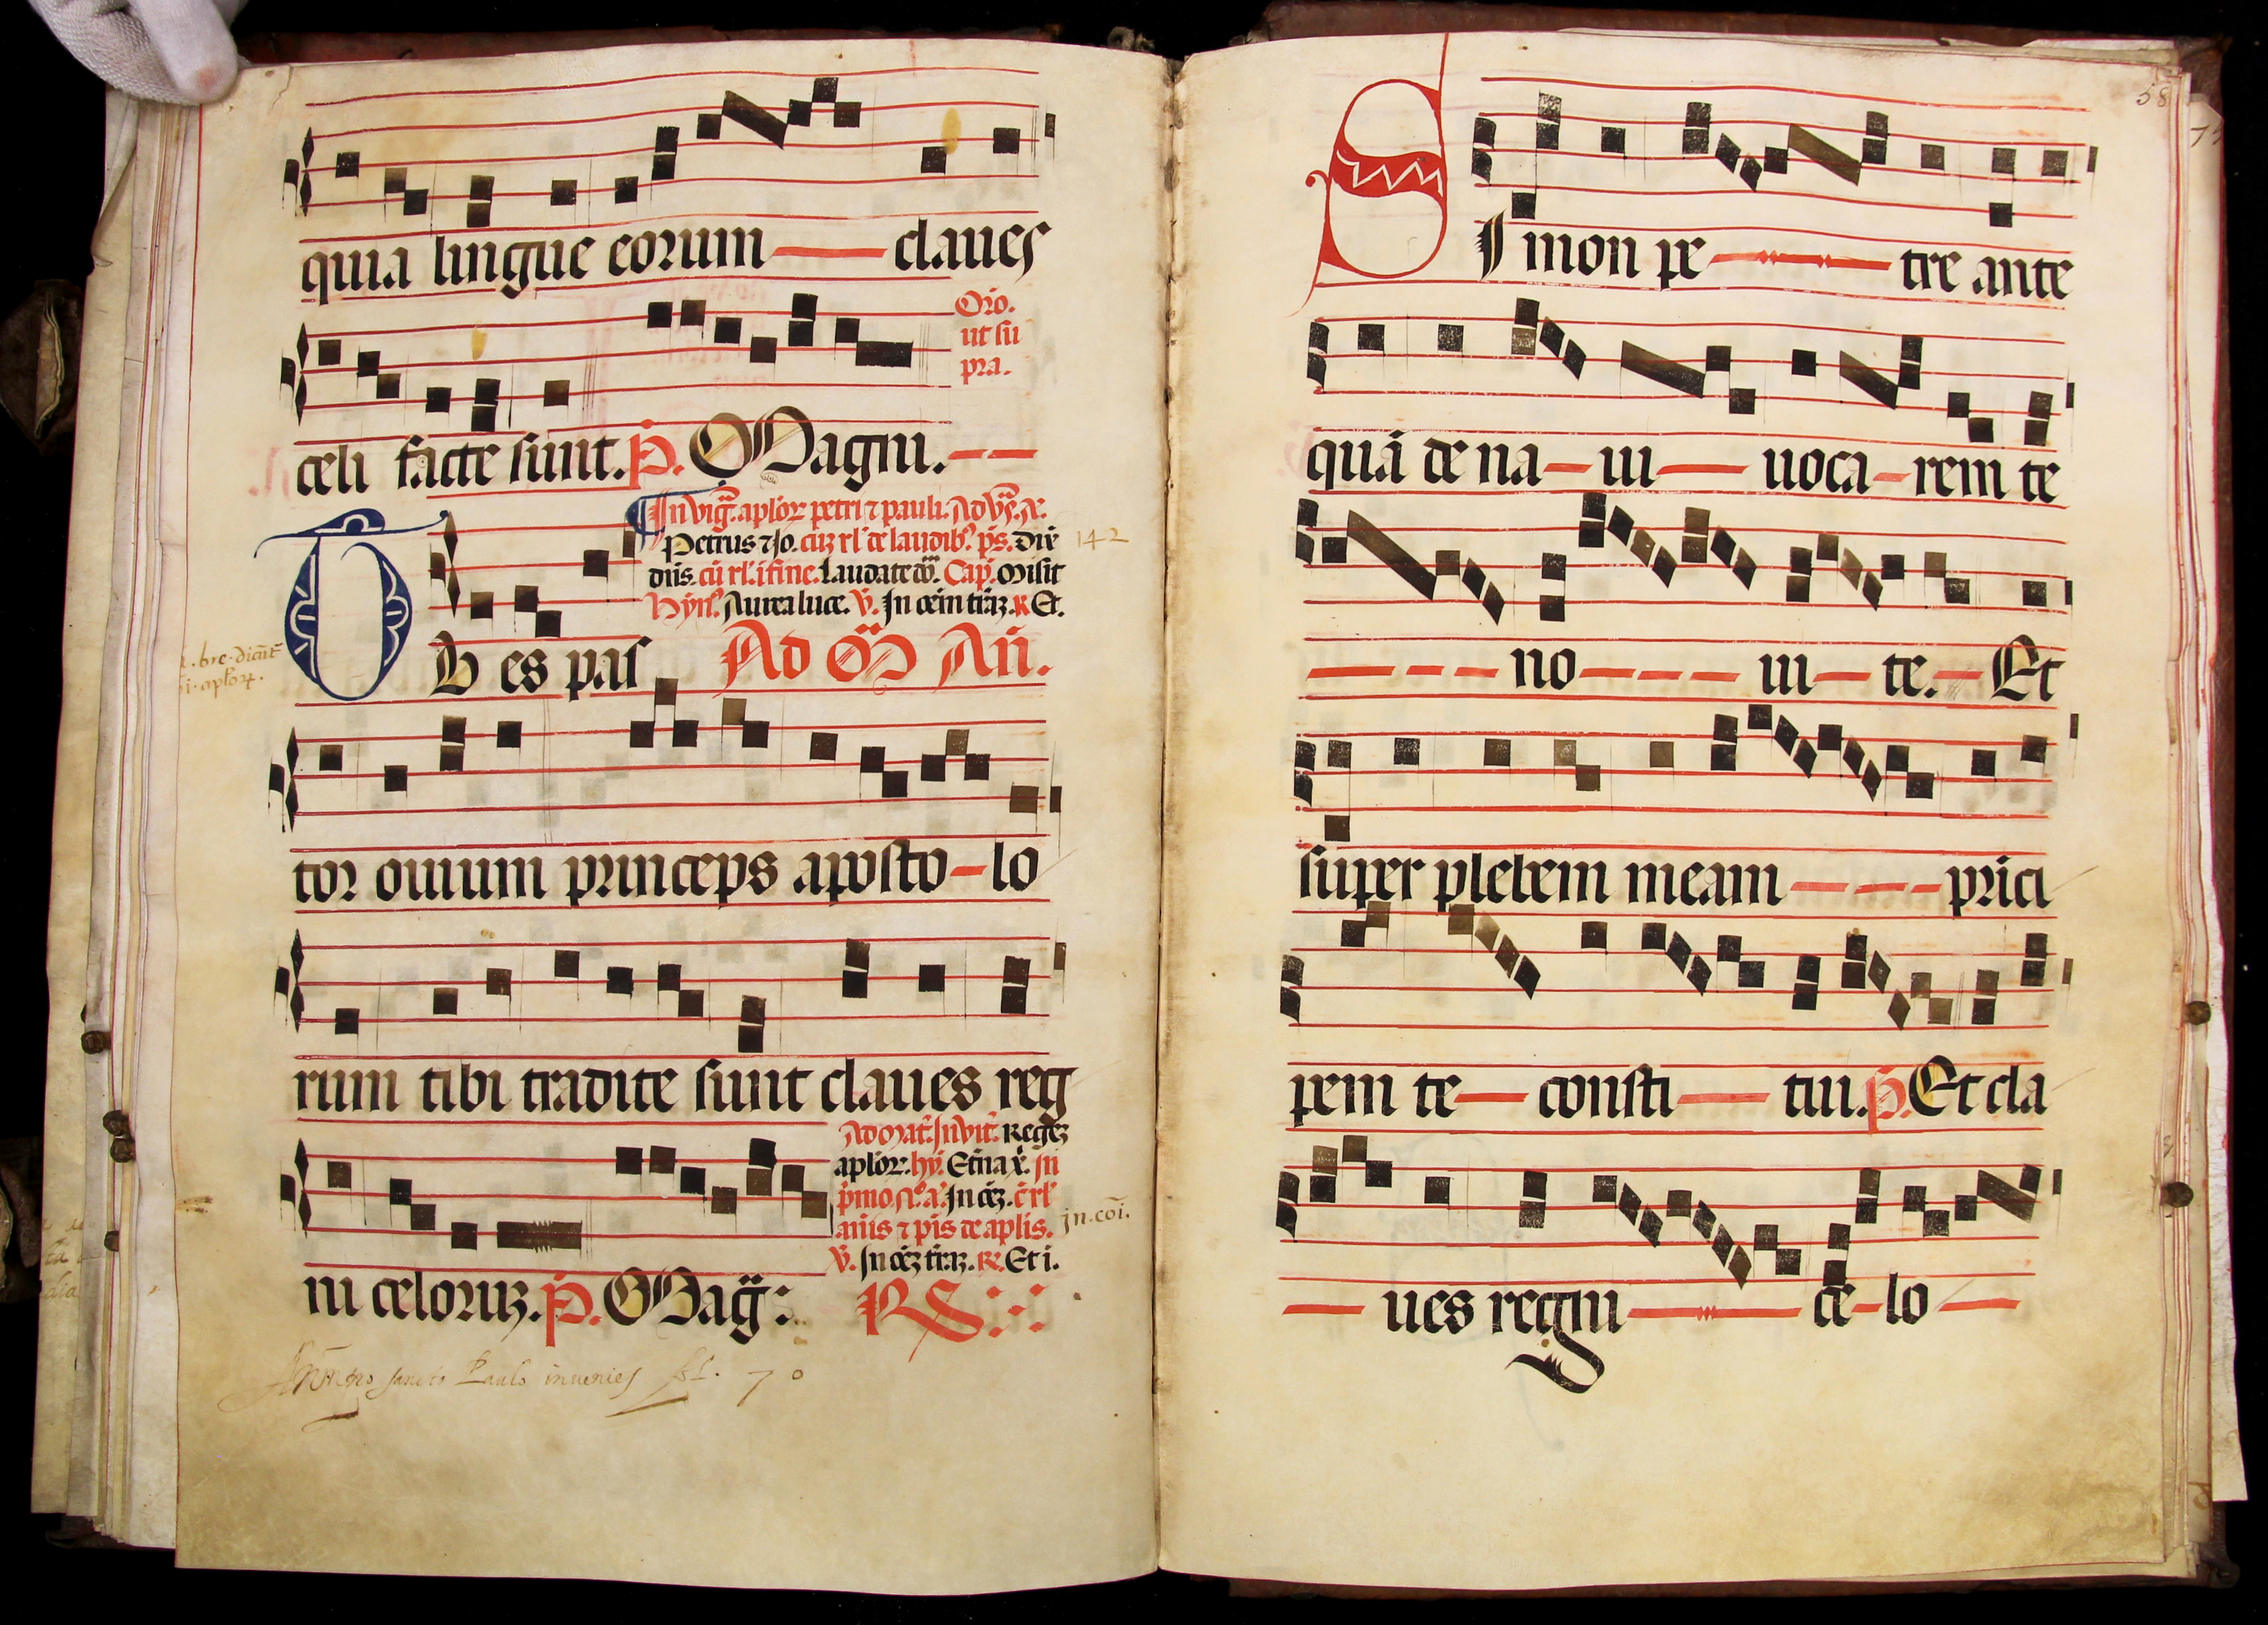 quia lingue eorum claues
Oro.
ut su
pra.
celi facte sunt. P. Magni.
In vig. aplor petri ⁊ pauli. Ad vs. A.
Petrus ⁊ Jo. cuz rl' de laudib' ps. Dix
dns. cu rl' i fine. Laudate do. Cap. Misit
Hyn. Aurea luce. V. In oem traz. R Et.
142
Tu es pas Ad M An.
tor ouium princeps aposto-lo
rum tibi tradite sunt claues reg
Ad Mat. Invit. Regez
aplor. hy. Etna x. In
pmo N. a. In oez. c rl'
aniis ⁊ pis de aplis. in. coi.
V. In oez traz. R. Et i.
ni celoruz. P. Mag: RS
sancto Paulo inuenies fol. 70
58
Simon pe tre ante
quã de na-ui uoca-rem te
no ui te. Et
super plebem meam prici
pem te consti tui. P. Et cla
ues regni ce-lo